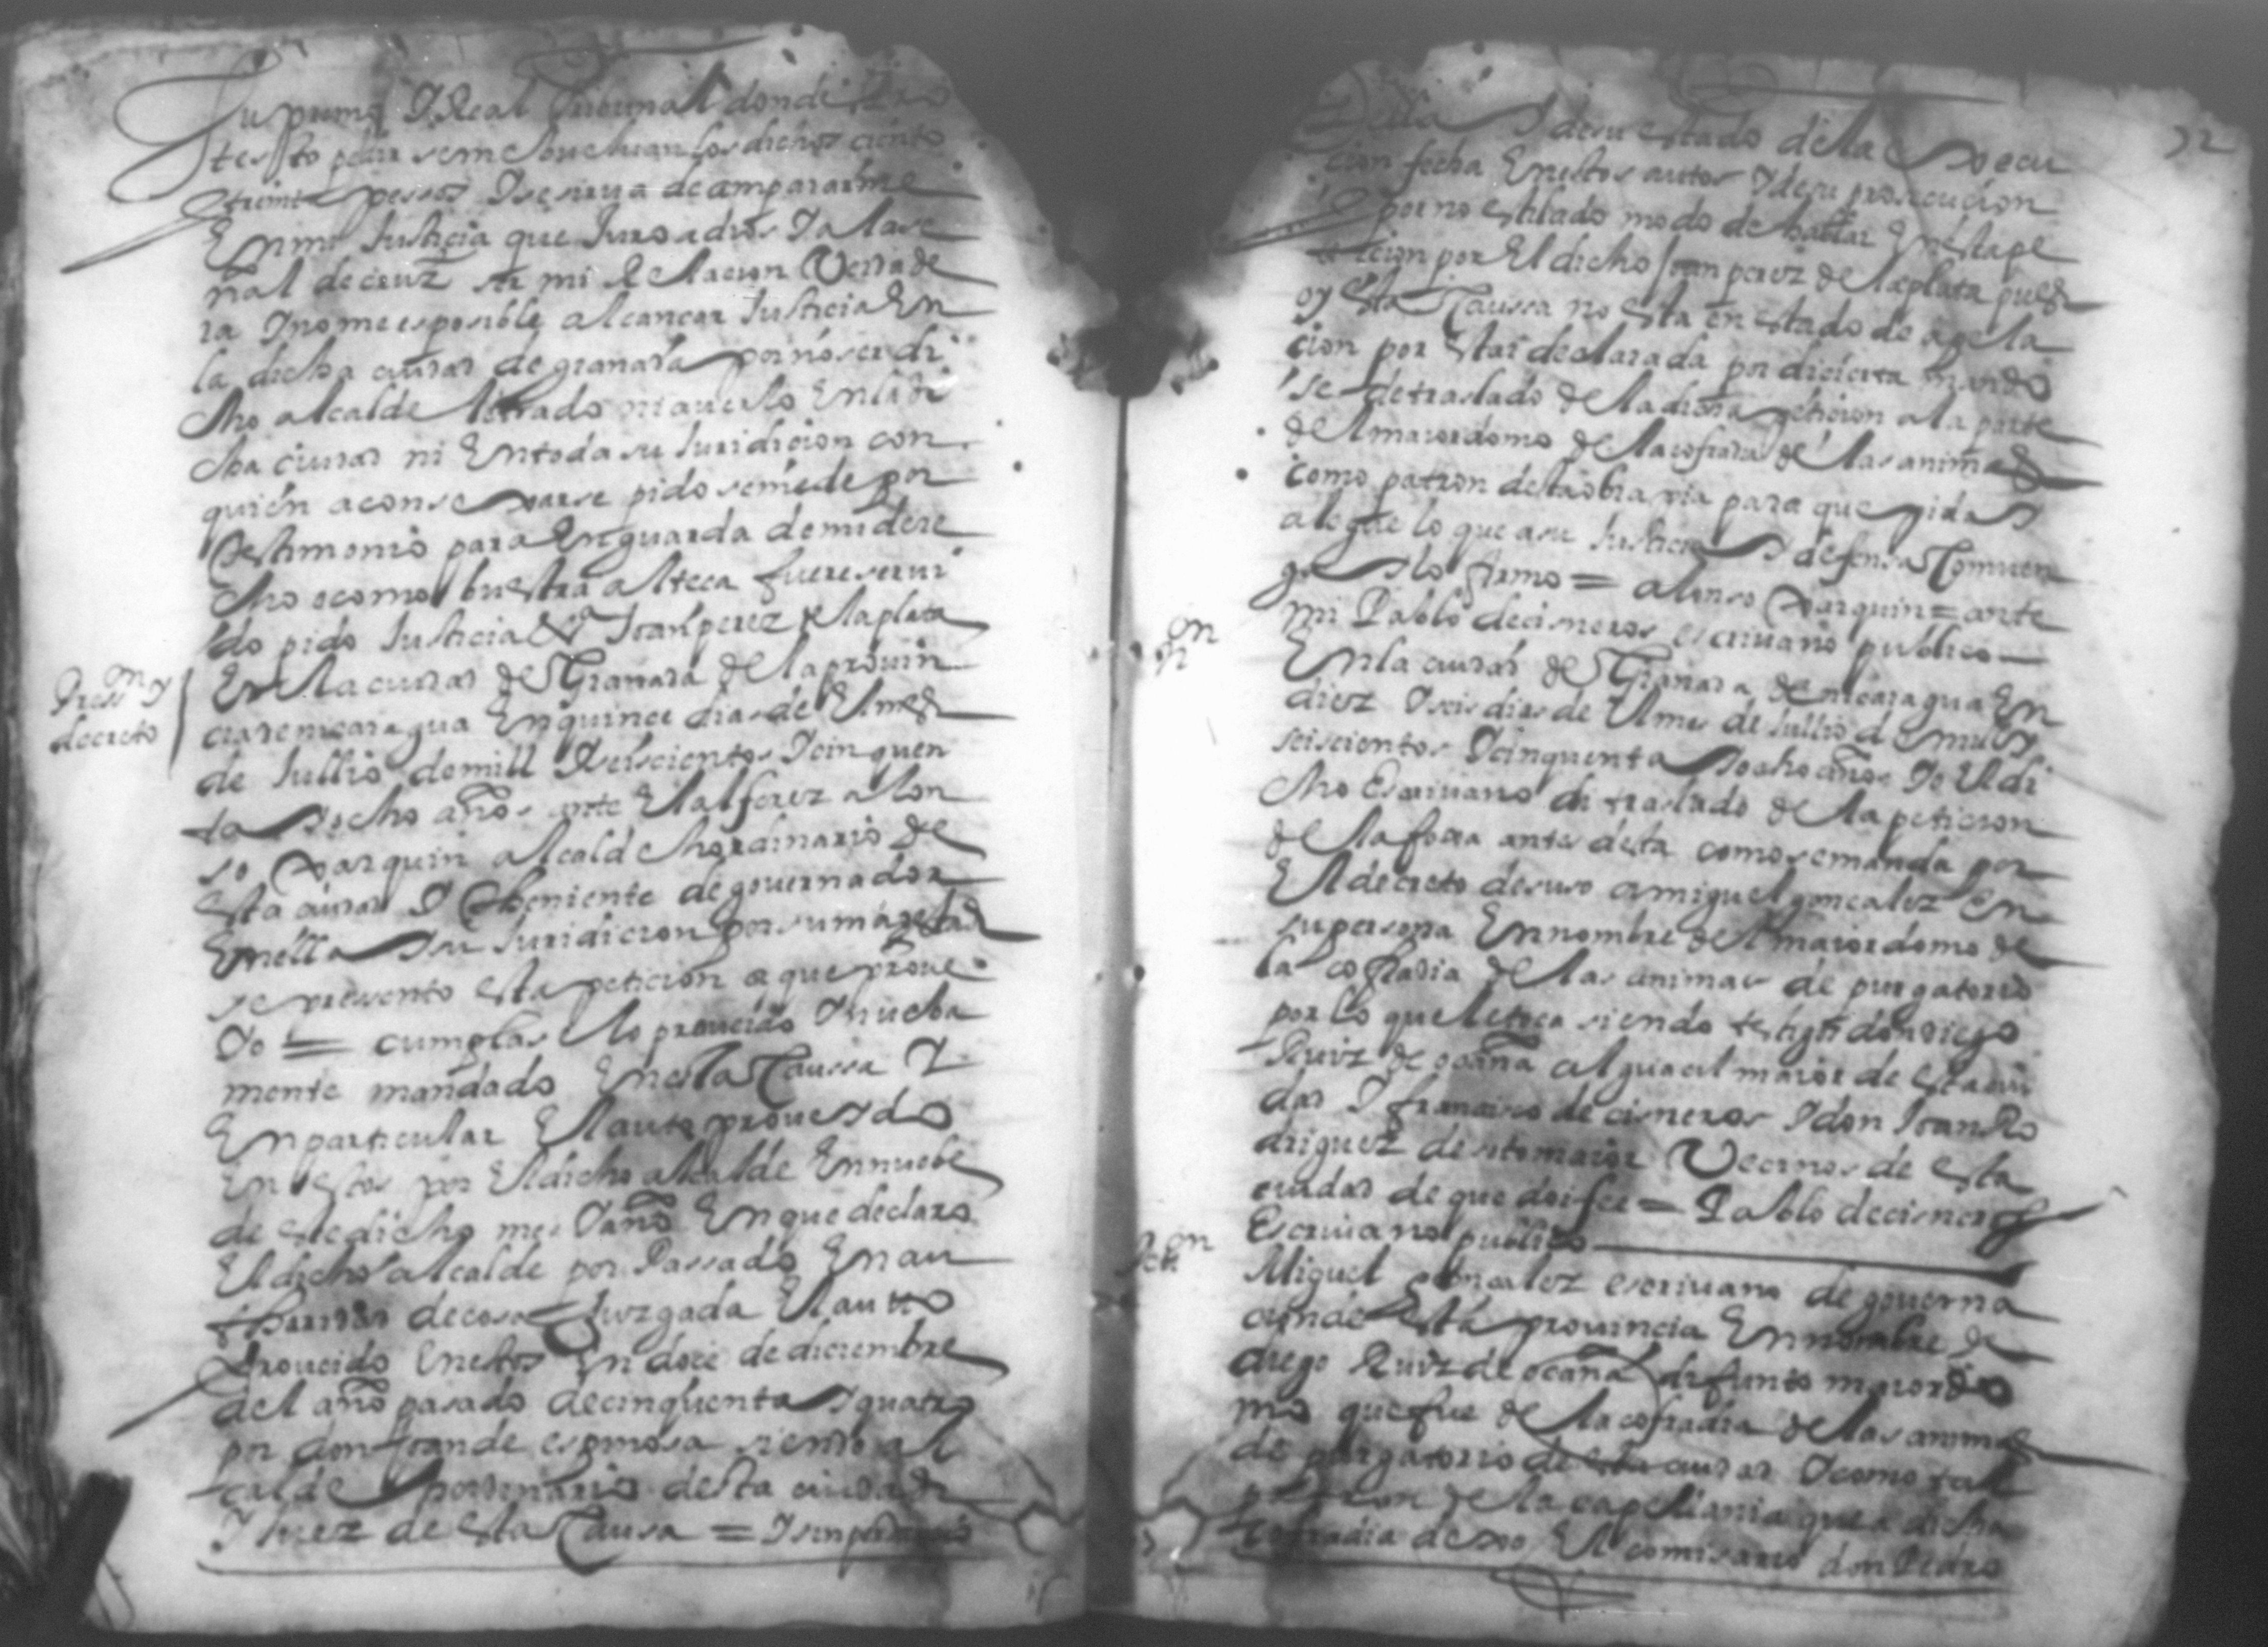 Supremo Y Real tribunal donde Pro
testo pedir se me bueluan los dichos ciento
Y treinta pessos Y se sirua de ampararme
En mi Justicia que Juro a dios Y a la se
ñal de cruz ser mi Relacion Verrade
ra Y no me es posible alcancar Justicia En
la dicha ciudad de granada por no ser di
cho alcalde letrado ni auerlo En la di
cha ciudad ni En toda su Juridicion con
quien aconsexarse pido se me de por
testimonio para En guarda de mi dere
cho o como buestra alteca fuere serui
do pido Justicia Joan perez de la plata
Press.on y
decreto
En la ciudad de Granada de la prouin
cia de nicaragua En quince dias de El mes
de Jullio de mill Y seiscientos Y cinquen
ta Y ocho años ante El alferez alon
so Xarquin alcalde hordinario de
esta ciudad Y theniente de gouernador
En ella Y su Juridicion por su magestad
se presento esta peticion a que proue
Yo = cumplase lo proueido Y nueba
mente mandado En esta Caussa Y
En particular El auto proueydo
En estos por El dicho alcalde En nuebe
de este dicho mes Y año En que declaro
El dicho alcalde por Passado En au
thoridad de cosa Juzgada El auto
proueido En estos En doce de diciembre
del año pasado de cinquenta Y quatro
por don fran de espinosa siendo al
calde hordinario desta ciudad
Y Juez de esta Causa = Y sin perjuicio
32
della Y de su estado de la Execu
cion fecha En estos autos Y de su prosecucion
Y por no estilado modo de hablar En esta pe
ticion por El dicho Joan perez de la plata pues
oy esta Caussa no esta en estado de apela
cion por estar declarada por dicierta mando
se de traslado de la dicha peticion a la parte
del maiordomo de la cofradia de las animas
como patron desta obra pia para que pida Y
alegue lo que a su Justicia Y defensa Conuen
ga Y lo firmo = alonso Xarquin = ante
mi Pablo de cisneros escriuano publico
on
En la ciudad de Granada de nicaragua En
diez Y seis dias de El mes de Jullio de mill Y
seiscientos Y cinquenta Y ocho años Yo El di
cho Escriuano di traslado de la peticion
de la foxa antes desta como se manda por
El decreto de suso a miguel goncalez En
su persona En nombre de El maiordomo de
la cofradia de las animas de purgatorio
por lo que le toca siendo testigos don diego
Ruiz de ocaña alguacil maior de esta ciu
dad Y francisco de cisneros Y don Joan Ro
driguez de sotomaior Vecinos de esta
ciudad de que doi fee = Pablo de cisneros
Escriuano publico
Pet.on
Miguel goncalez escriuano de gouerna
cion de esta prouincia En nombre de
diego Ruiz de ocaña difunto maiordo
mo que fue de la cofradia de las animas
de purgatorio de esta ciudad Y como tal
patron de la capellania que a dicha
cofradia dexo El comisario don Pedro